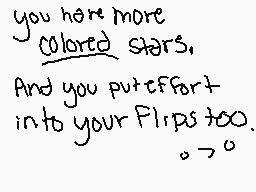 you have more
colored stars.
And you put effort
into your Flips too.
o > o